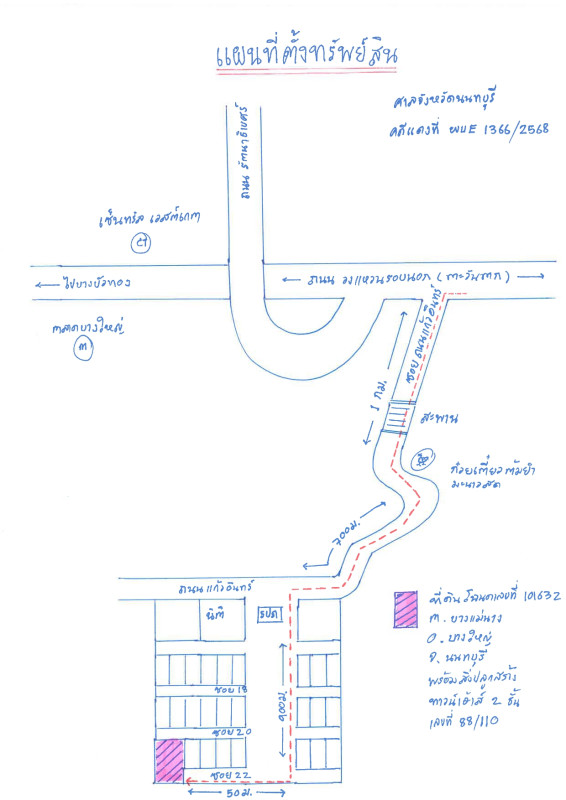 แผนที่ตั้งทรัพย์สิน
ศาลจังหวัดนนทบุรี
คดีแดงที่ ผบE 1366/2568
ถนน รัตนาธิเบศร์
เซ็นทรัล เวสต์เกต
ไปบางบัวทอง
ถนน วงแหวนรอบนอก (ตะวันตก)
ตลาดบางใหญ่
ต
ซอย ถนนแก้วอินทร์
1 กม.
สะพาน
ก๋วยเตี๋ยวต้มยำ
มะนาวสด
700 ม.
ถนนแก้วอินทร์
นิติ
รปภ
ซอย 18
ซอย 20
ซอย 22
50 ม.
ที่ดิน โฉนดเลขที่ 101632
ต. บางแม่นาง
อ. บางใหญ่
จ. นนทบุรี
พร้อมสิ่งปลูกสร้าง
ทาวน์เฮ้าส์ 2 ชั้น
เลขที่ 88/110